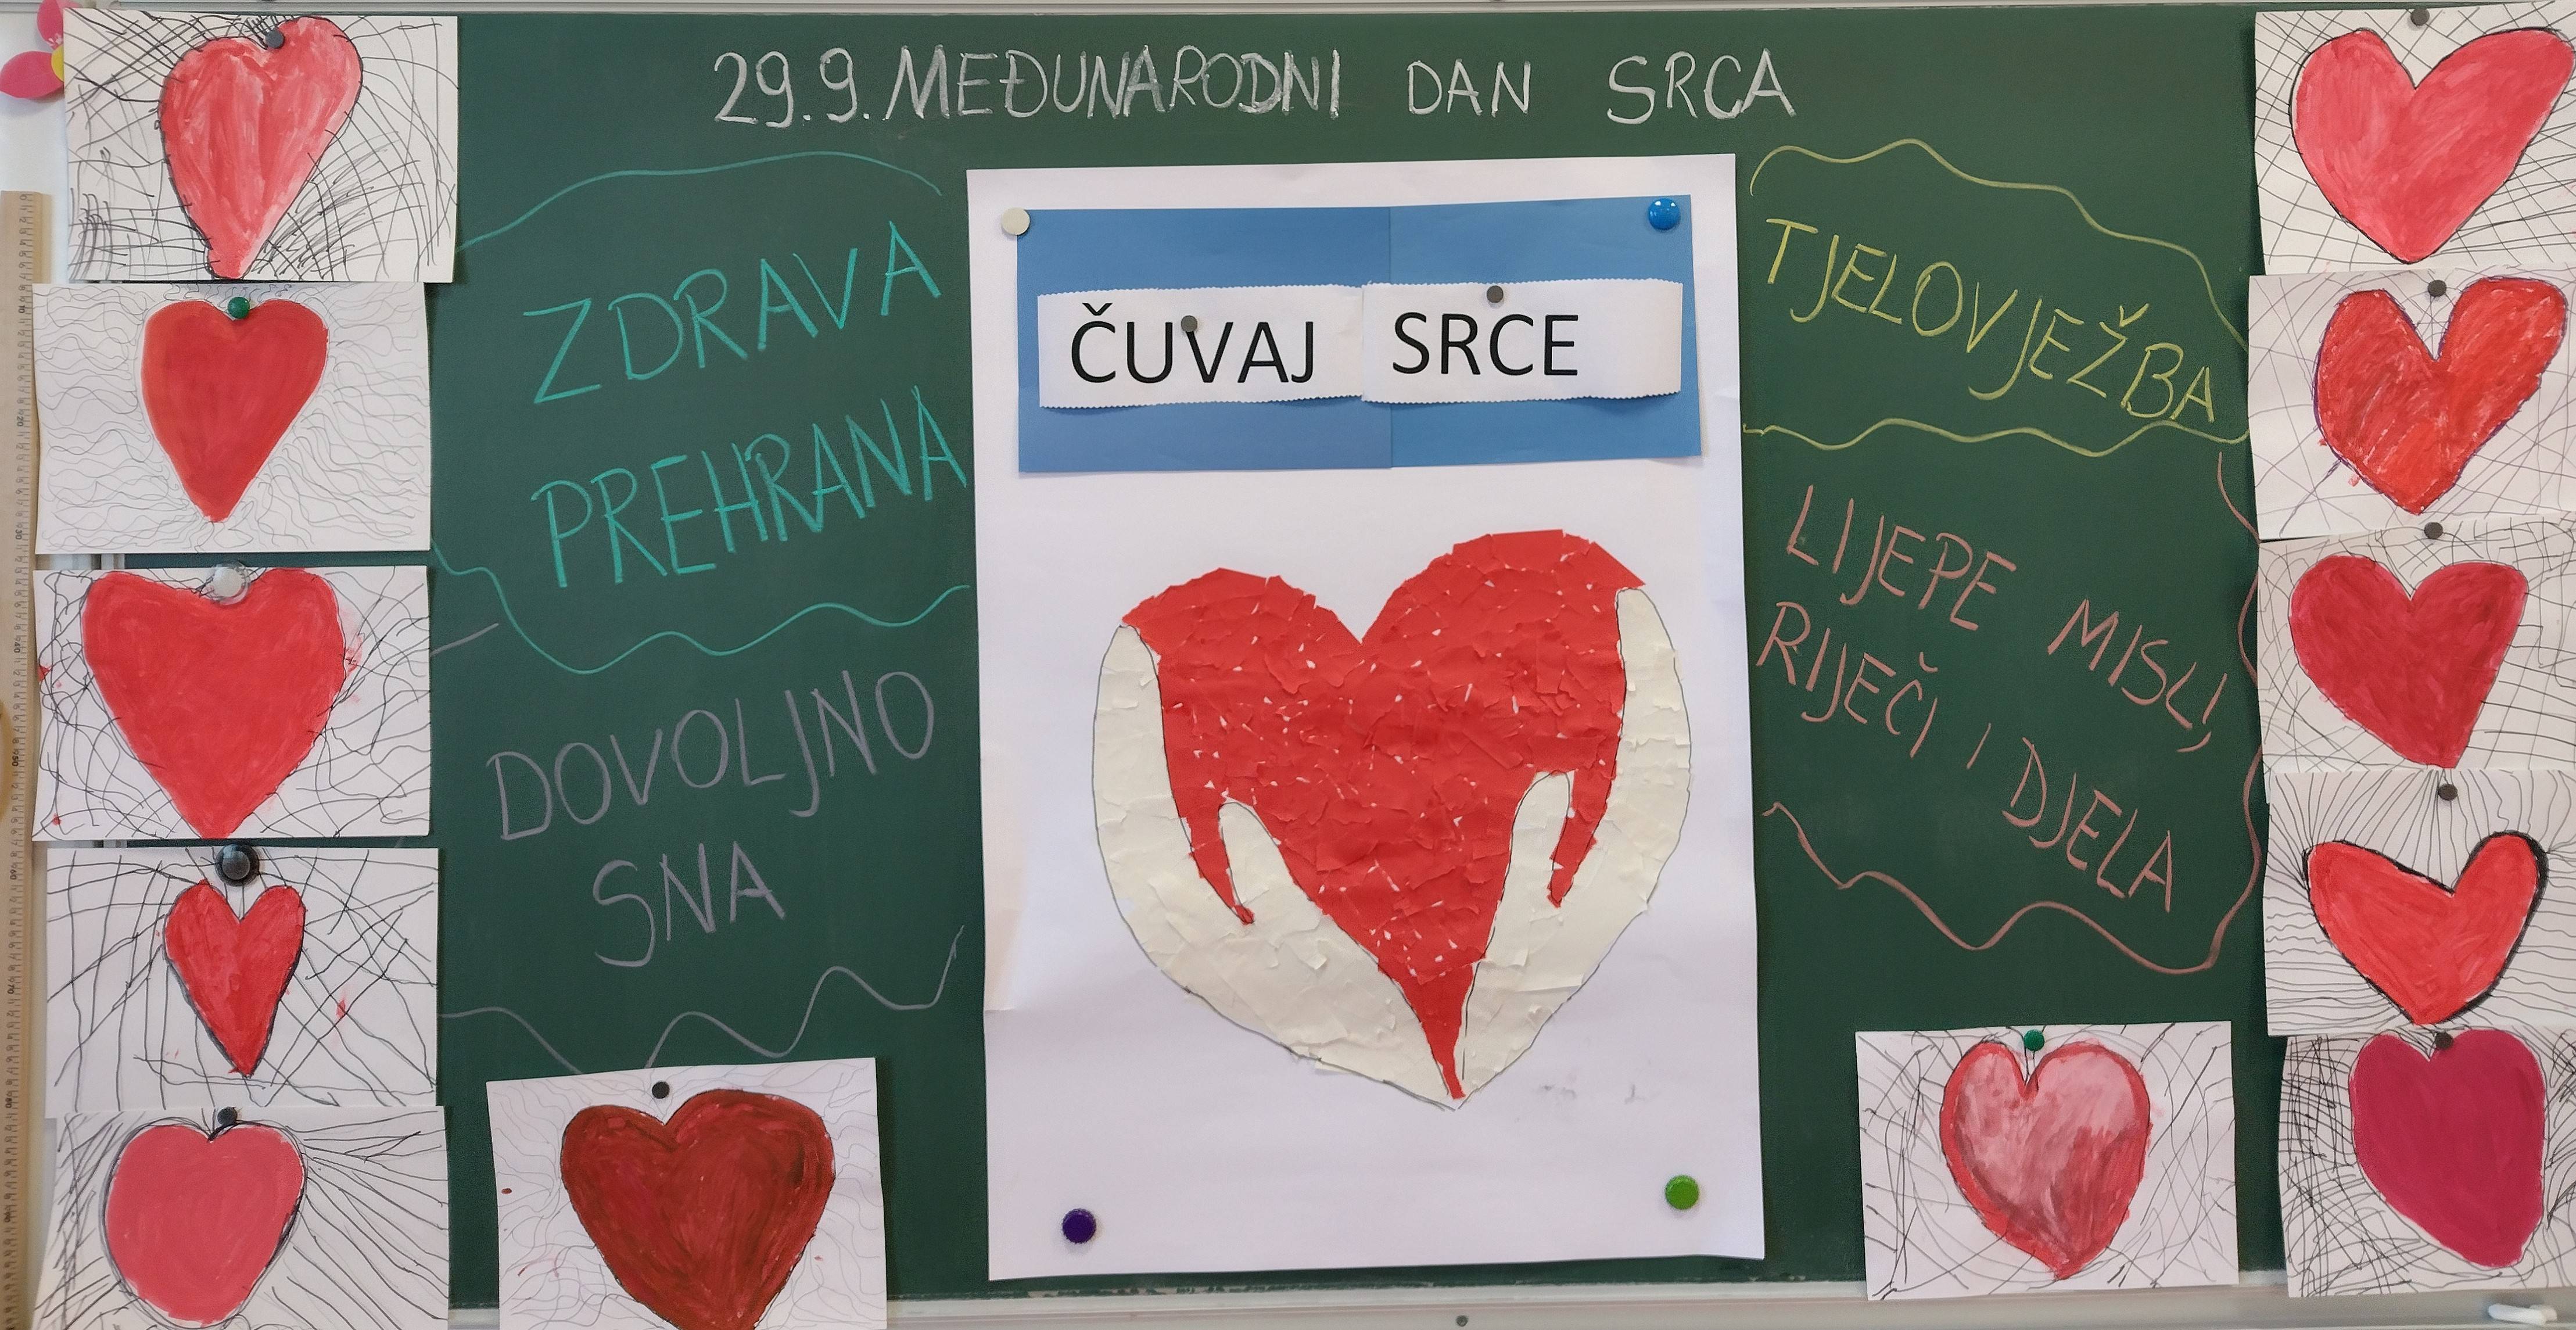 29.9. MEĐUNARODNI DAN SRCA
ZDRAVA
PREHRANA
DOVOLJNO
SNA
ČUVAJ SRCE
TJELOVJEŽBA
LIJEPE MISLI,
RIJEČI I DJELA